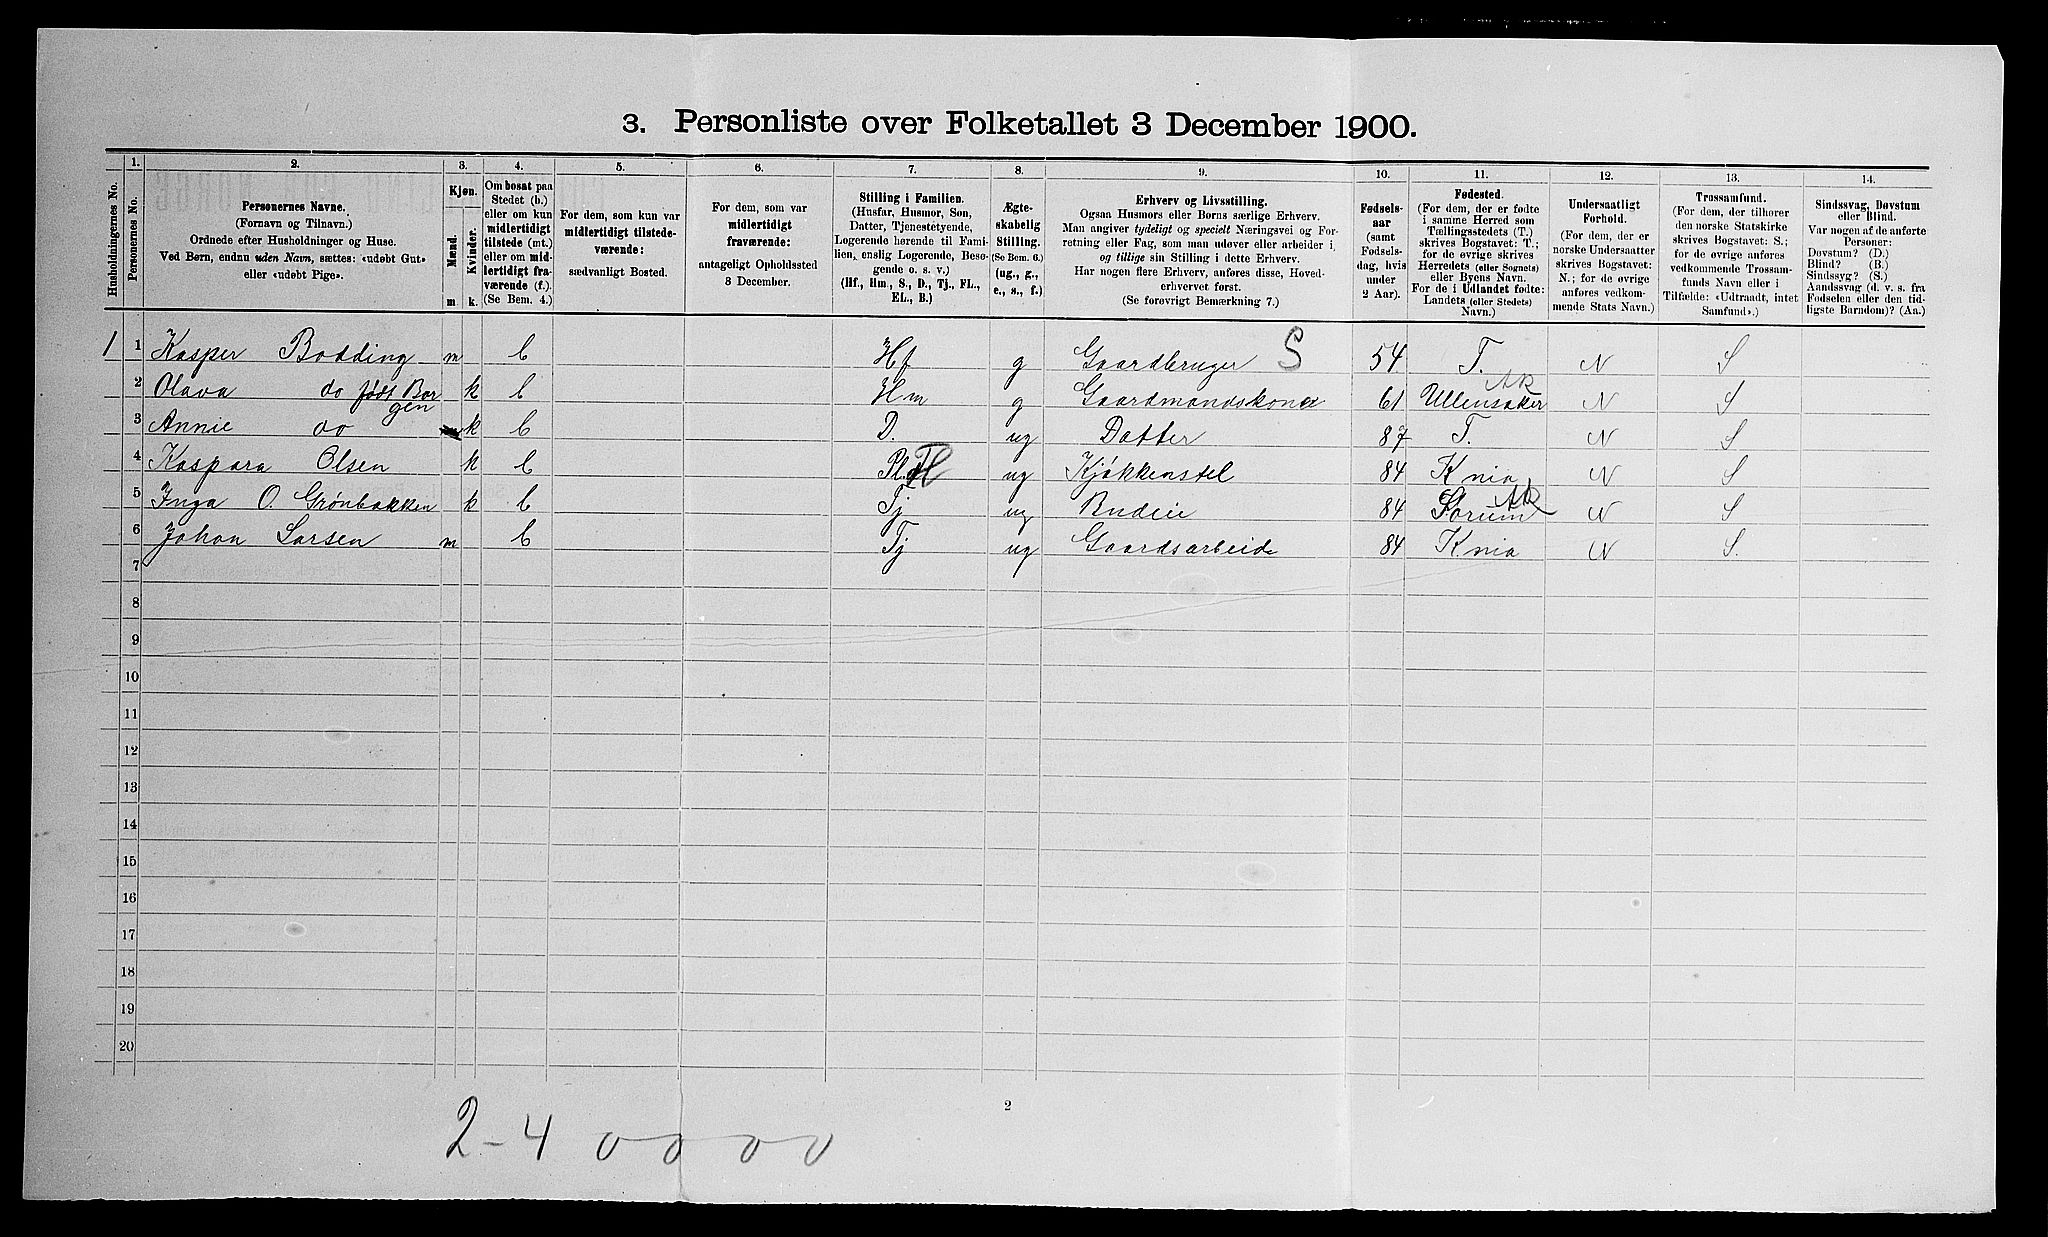 3. Personliste over Folketallet 3 December 1900.
Husholdningernes No.
1. Personernes No.
2. Personernes Navne.
(Fornavn og Tilnavn.)
Ordnede efter Husholdninger og Huse.
Ved Børn, endnu uden Navn, sættes: «udøbt Gut»
eller «udøbt Pige».
3. Kjøn.
Mænd. m.
Kvinder. k.
4. Om bosat paa
Stedet (b.)
eller om kun
midlertidigt
tilstede (mt.)
eller om midlertidigt
fraværende (f.).
(Se Bem. 4.)
5. For dem, som kun var
midlertidigt tilstedeværende:
sædvanligt Bosted.
6. For dem, som var
midlertidigt
fraværende:
antageligt Opholdssted
3 December.
7. Stilling i Familien.
(Husfar, Husmor, Søn,
Datter, Tjenestetyende,
Logerende hørende til Familien,
enslig Logerende, Besøgende
o. s. v.)
(Hf., Hm., S., D., Tj., FL.,
EL., B.)
8. Ægteskabelig
Stilling.
(Se Bem. 6.)
(ug., g.,
e., s., f.)
9. Erhverv og Livsstilling.
Ogsaa Husmors eller Børns særlige Erhverv.
Man angiver tydeligt og specielt Næringsvei og Forretning
eller Fag, som man udøver eller arbeider i,
og tillige sin Stilling i dette Erhverv.
Har nogen flere Erhverv, anføres disse, Hovederhvervet
først.
(Se forøvrigt Bemærkning 7.)
10. Fødselsaar
(samt
Fødselsdag,
hvis
under
2 Aar).
11. Fødested.
(For dem, der er fødte
i samme Herred som
Tællingsstedets (T.)
skrives Bogstavet: T.;
for de øvrige skrives
Herredets (eller Sognets)
eller Byens Navn.
For de i Udlandet fødte:
Landets (eller Stedets)
Navn.)
12. Undersaatligt
Forhold.
(For dem, der er
norske Undersaatter
skrives Bogstavet:
N.; for de øvrige
anføres vedkommende
Stats Navn.)
13. Trossamfund.
(For dem, der tilhører
den norske Statskirke
skrives Bogstavet: S.;
for de øvrige anføres
vedkommende Trossamfunds
Navn eller i
Tilfælde: «Udtraadt, intet
Samfund».)
14. Sindssvag, Døvstum
eller Blind.
Var nogen af de anførte
Personer:
Døvstum? (D.)
Blind? (B.)
Sindssyg? (S.)
Aandssvag (d. v. s. fra
Fødselen eller den tidligste
Barndom)? (Aa.)
1 1 Kasper Bodding m b Hf g Gaardbruger S 54 T. N S
2 Olava do føds Borgen k b Hm g Gaardmandskone 61 Ullensaker Ak N S
3 Annie do k b D. ug Datter 87 T. N S
4 Kaspara Olsen k b Pl.d Fl ug Kjøkkenstel 84 Knia N S
5 Inga O. Grønbakken k b Tj ug Budeie 84 Sorum Ak N S
6 Johan Larsen m b Tj ug Gaardsarbeide 84 Knia N S.
7
8
9
10
11
12
13
14
15
16
17
18
19
20
2
2-4 0 0 0 0